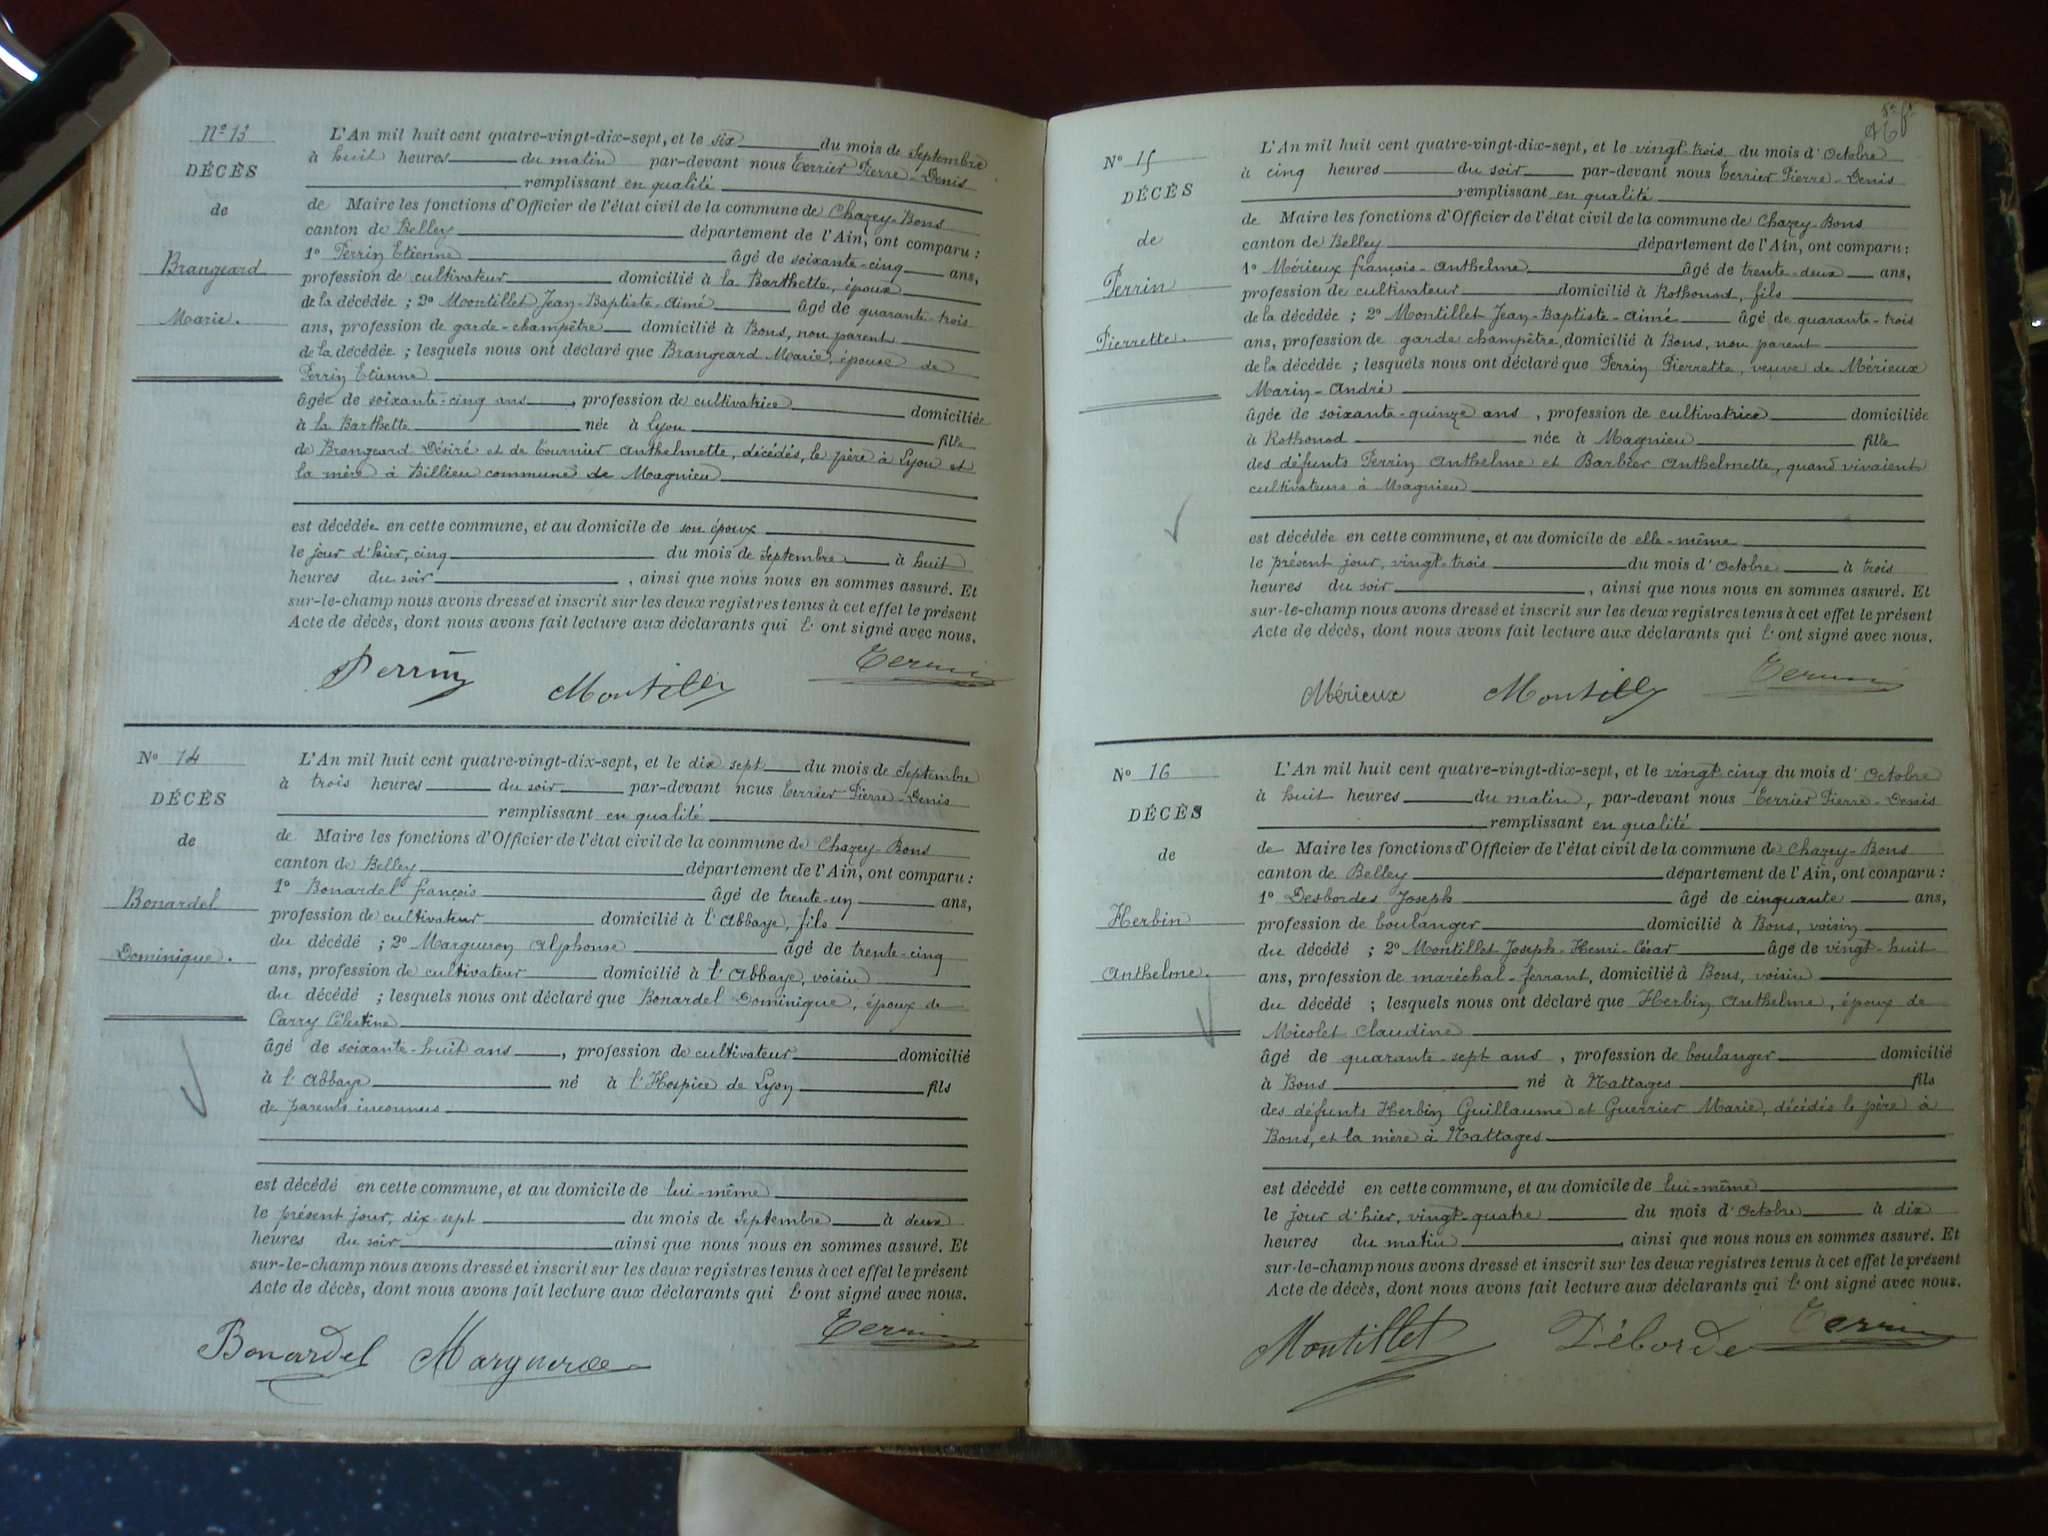 Nº 13
DÉCÈS
de
Brangeard
Marie.
L'An mil huit cent quatre-vingt-dix-sept, et le six du mois de Septembre
à huit heures du matin par-devant nous Terrier Pierre-Denis
remplissant en qualité
de Maire les fonctions d'Officier de l'état civil de la commune de Chazey-Bons
canton de Belley département de l'Ain, ont comparu :
1º Perrin Etienne âgé de soixante-cinq ans,
profession de cultivateur domicilié à la Barthette, époux
de la décédée ; 2º Montillet Jean-Baptiste-Aimé âgé de quarante-trois
ans, profession de garde-champêtre domicilié à Bons, non parent
de la décédée ; lesquels nous ont déclaré que Brangeard Marie, épouse de
Perrin Etienne
âgée de soixante-cinq ans, profession de cultivatrice domiciliée
à la Barthette née à Lyon fille
de Brangeard Désiré et de Tournier Anthelmette, décédés, le père à Lyon et
la mère à Billieu commune de Magnieu
est décédée en cette commune, et au domicile de son époux
le jour d'hier, cinq du mois de Septembre à huit
heures du soir, ainsi que nous nous en sommes assuré. Et
sur-le-champ nous avons dressé et inscrit sur les deux registres tenus à cet effet le présent
Acte de décès, dont nous avons fait lecture aux déclarants qui l' ont signé avec nous.
Perrin Montillet Terrier
Nº 14
DÉCÈS
de
Bonardel
Dominique.
L'An mil huit cent quatre-vingt-dix-sept, et le dix sept du mois de Septembre
à trois heures du soir par-devant nous Terrier Pierre-Denis
remplissant en qualité
de Maire les fonctions d'Officier de l'état civil de la commune de Chazey-Bons
canton de Belley département de l'Ain, ont comparu :
1º Bonardel françois âgé de trente-un ans,
profession de cultivateur domicilié à l'Abbaye, fils
du décédé ; 2º Margueron Alphonse âgé de trente-cinq
ans, profession de cultivateur domicilié à l'Abbaye, voisin
du décédé ; lesquels nous ont déclaré que Bonardel Dominique, époux de
Carry Célestine
âgé de soixante-huit ans, profession de cultivateur domicilié
à l'Abbaye né à l'Hospice de Lyon fils
de parents inconnus
est décédé en cette commune, et au domicile de lui-même
le présent jour, dix-sept du mois de Septembre à deux
heures du soir ainsi que nous nous en sommes assuré. Et
sur-le-champ nous avons dressé et inscrit sur les deux registres tenus à cet effet le présent
Acte de décès, dont nous avons fait lecture aux déclarants qui l' ont signé avec nous.
Bonardel Margueron Terrier
Nº 15
DÉCÈS
de
Perrin
Pierrette.
L'An mil huit cent quatre-vingt-dix-sept, et le vingt-trois du mois d'Octobre
à cinq heures du soir par-devant nous Terrier Pierre-Denis
remplissant en qualité
de Maire les fonctions d'Officier de l'état civil de la commune de Chazey-Bons
canton de Belley département de l'Ain, ont comparu :
1º Mérieux françois-Anthelme âgé de trente-deux ans,
profession de cultivateur domicilié à Rothonod, fils
de la décédée ; 2º Montillet Jean-Baptiste-Aimé âgé de quarante-trois
ans, profession de garde champêtre, domicilié à Bons, non parent
de la décédée ; lesquels nous ont déclaré que Perrin Pierrette, veuve de Mérieux
Marin-André
âgée de soixante-quinze ans, profession de cultivatrice domiciliée
à Rothonod née à Magnieu fille
des défunts Perrin Anthelme et Barbier Anthelmette, quand vivaient
cultivateurs à Magnieu
est décédée en cette commune, et au domicile de elle-même
le présent jour, vingt-trois du mois d'Octobre à trois
heures du soir, ainsi que nous nous en sommes assuré. Et
sur-le-champ nous avons dressé et inscrit sur les deux registres tenus à cet effet le présent
Acte de décès, dont nous avons fait lecture aux déclarants qui l' ont signé avec nous.
Mérieux Montillet Terrier
Nº 16
DÉCÈS
de
Herbin
Anthelme.
L'An mil huit cent quatre-vingt-dix-sept, et le vingt-cinq du mois d'Octobre
à huit heures du matin, par-devant nous Terrier Pierre-Denis
remplissant en qualité
de Maire les fonctions d'Officier de l'état civil de la commune de Chazey-Bons
canton de Belley département de l'Ain, ont comparu :
1º Desbordes Joseph âgé de cinquante ans,
profession de boulanger domicilié à Bons, voisin
du décédé ; 2º Montillet Joseph-Henri-César âgé de vingt-huit
ans, profession de maréchal-ferrant, domicilié à Bons, voisin
du décédé ; lesquels nous ont déclaré que Herbin Anthelme, époux de
Micolet Claudine
âgé de quarante-sept ans, profession de boulanger domicilié
à Bons né à Nattages fils
des défunts Herbin Guillaume et Guerrier Marie, décédés le père à
Bons, et la mère à Nattages
est décédé en cette commune, et au domicile de lui-même
le jour d'hier, vingt-quatre du mois d'Octobre à dix
heures du matin, ainsi que nous nous en sommes assuré. Et
sur-le-champ nous avons dressé et inscrit sur les deux registres tenus à cet effet le présent
Acte de décès, dont nous avons fait lecture aux déclarants qui l' ont signé avec nous.
Montillet Déborde Terrier